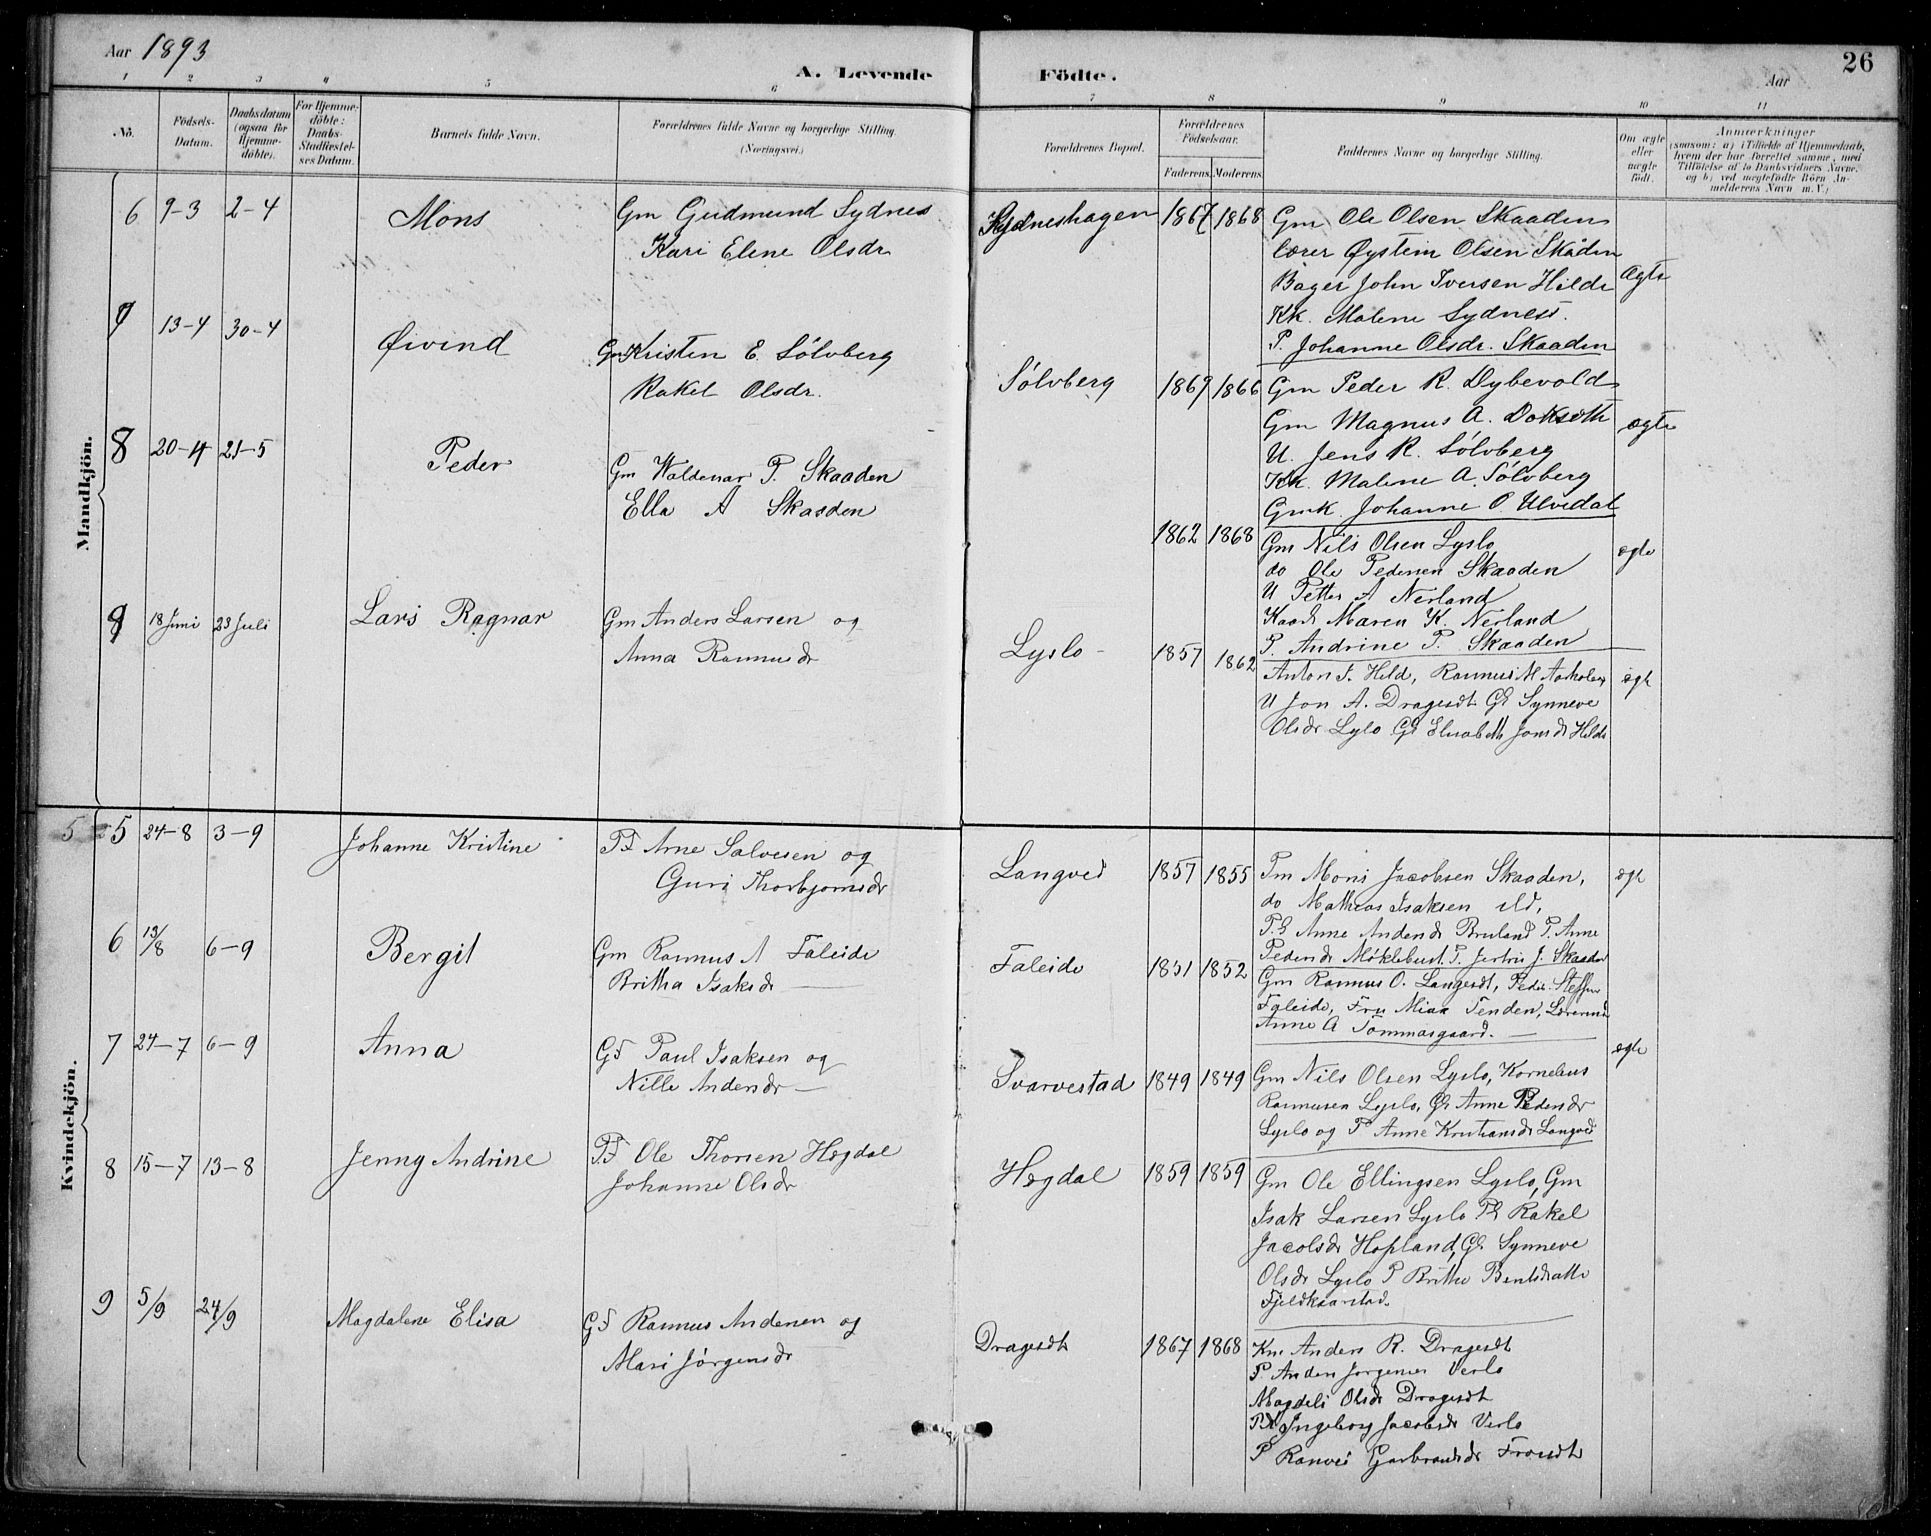 Aar 1893
A. Levende Födte.
Aar
26
1 2 3 4 5 6 7 8 9 10 11
No.
Födsels-
Datum.
Daabsdatum
(ogsaa for
Hjemme-
döbte).
For Hjemme-
döbte:
Daabs-
Stadfæstel-
ses Datum.
Barnets fulde Navn.
Forældrenes fulde Navne og borgerlige Stilling.
(Næringsvei.)
Forældrenes Bopæl.
Forældrenes
Födselsaar.
Faderens. Moderens.
Faddernes Navne og borgerlige Stilling.
Om ægte
eller
uægte
födt.
Anmærkninger
(saasom: a) i Tilfælde af Hjemmedaab,
hvem der har forrettet samme, med
Tilföielse af to Daabsvidners Navne,
og b) ved uægtefödte Börn An-
melderens Navn m. V.)
Mandkjön.
6 9-3 2-4 Mons
Gm Gudmund Sydnes
Kari Elene Olsdr
Sydneshagen 1867 1868
Gm Ole Olsen Skaaden
Lærer Øystein Olsen Skaden
Bager John Iversen Hilde
Kk. Malene Sydness.
P. Johanne Olsdr. Skaaden
Ægte
7 13-4 30-4 Øivind
Gm Kristen E. Sölvberg
Rakel Olsdr.
Sölvberg 1869 1866
Gm Peder R. Dybevold
Gm Magnus A. Dokseth
U. Jens R. Sölvberg
Kk. Malene A. Sölvberg
Gmk. Johanne O. Ulvedal
ægte
8 20-4 21-5 Peder
Gm Waldemar P. Skaaden
Ella A Skaaden
1862 1868
Gm Nils Olsen Lyslo
do Ole Pedersen Skaaden
U Petter A Nerland
Maren K. Nerland
P. Andrine P. Skaaden
ægte
9 18 Juni 23 Juli Lars Ragnar
Gm Anders Larsen og
Anna Rasmusdr
Lyslo 1857 1862
Anton J. Hild, Rasmus M
U Jon A. Dragesdt. GE Synneve
Olsdr Lyslo GE Elisabeth Jonsdr Hilde
ægte
Kvindekjön.
5 5 24-8 3-9 Johanne Kristine
PF Arne Salvesen og
Guri Thorbjornsdr
Langved 1857 1855
Pm Mons Jacobsen Skaaden,
do Mathias Isaksen ild,
P.E Anne Andersdr Bruland P. Anne
Pedersdr Møklebust P. J. Skaaden
ægte
6 13/8 6-9 Bergit
Gm Rasmus A Faleide
Britha Isaksdr
Faleide 1851 1852
Gm Rasmus O. Langesdt, Peder Steffen
Faleide, Fru Mina Tenden,
Anne A Tommasgaard.
7 24-7 6-9 Anna
GF Paul Isaksen og
Nille Andersdr
Svarvestad 1849 1849
Gm Nils Olsen Lyslo, Kornelius
Rasmusen Lyslo, GE Anne Pedersdr
Lyslo og P Anne Kristiansdr Langved
ægte
8 15-7 13-8 Jenny Andrine
PF Ole Thorsen Hegdal
Johanne Olsdr
Hegdal 1859 1859
Gm Ole Ellingsen Lyslo, Gm
Isak Larsen Lyslo PE Rakel
Jacobsdr Hopland, GE Synneve
Olsdr Lyslo P Brithe Bentsdatte
Fjeldkaarstad.
9 5/9 24/9 Magdalene Elisa
GF Rasmus Andersen og
Mari Jörgensdr
Dragesdt 1867 1868
Km Anders R. Dragesdt
P. Anders Jorgensen Verlo
Magdeli Olsdr Dragesdt
Ingeborg Jacobsdr Verlo
P Ranvei Gerbrandsdr